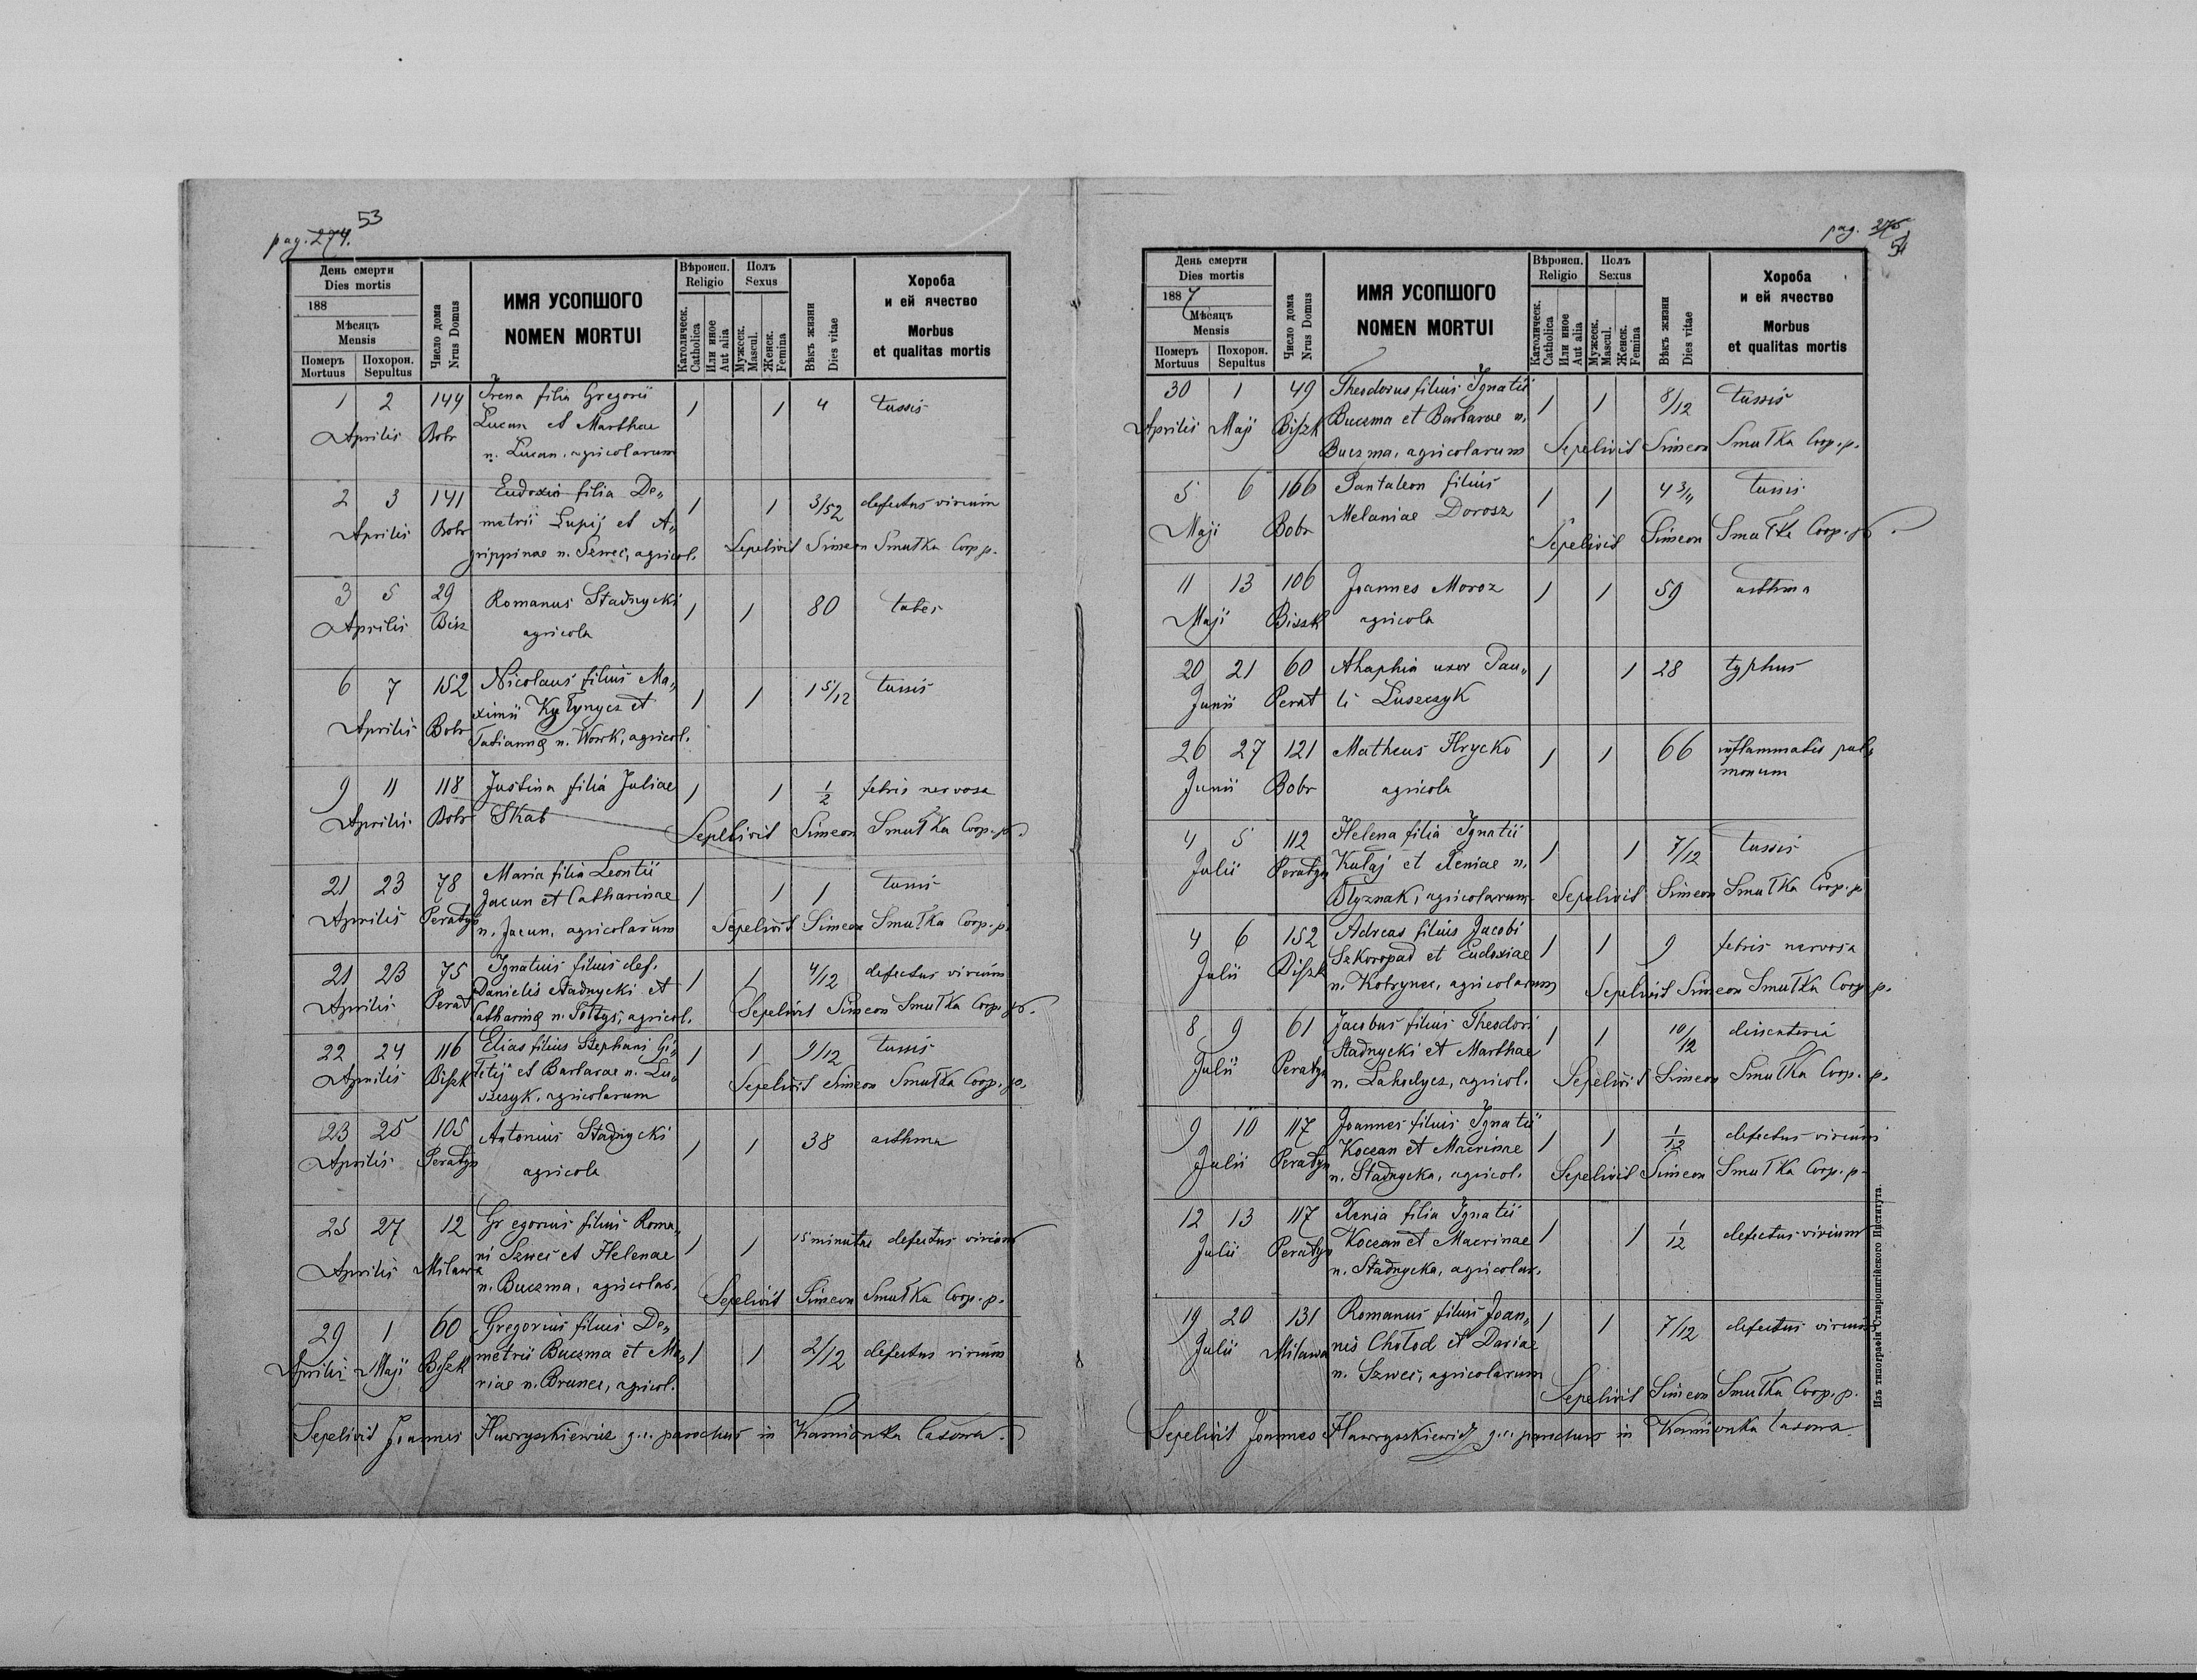 pag. 274. 53
День смерти
Dies mortis
188
Мѣсяцъ
Mensis
Померъ Mortuus
Похорон. Sepultus
Число дома
Nrus Domus
ИМЯ УСОПШОГО
NOMEN MORTUI
Вѣроисп.
Religio
Католическ.
Catholica
Или иное
Aut alia
Полъ
Sexus
Мужеск.
Mascul.
Женск.
Femina
Вѣкъ жизни
Dies vitae
Хороба
и ей ячество
Morbus
et qualitas mortis
1 2 144 Irena filia Gregorii 1 1 4 tussis
Aprilis Bobr Lucan et Marthae
n. Lucan, agricolarum
2 3 141 Eudoxia filia De„ 1 1 3/52 defectus virium
Aprilis Bobr metrii Lupij et A„
grippinae n. Szwec, agricol. Sepelivit Simeon Smutka Coop. p.
3 5 29 Romanus Stadnycki 1 1 80 tabes
Aprilis Bisz agricola
6 7 152 Nicolaus filius Ma„ 1 1 1 5/12 tussis
Aprilis Bobr ximii Kyłynycz et
Tatiannę n. Wowk, agricol.
9 11 118 Justina filia Juliae 1 1 1/2 febris nervosa
Aprilis Bobr Skab Sepelivit Simeon Smutka Coop. p.
21 23 78 Maria filia Leontii 1 1 1 tussis
Aprilis Peratyn Jacun et Catharinae
n. Jacun, agricolarum Sepelivit Simeon Smutka Coop. p.
21 23 75 Ignatius filius def. 1 1 4/12 defectus virium
Aprilis Perat Danielis Stadnycki et
Catharinę n. Sołtys, agricol. Sepelivit Simeon Smutka Coop. p.
22 24 116 Elias filius Stephani Gi„ 1 1 9/12 tussis
Aprilis Biszk letij et Barbarae n. Lu„ Sepelivit Simeon Smutka Coop. p.
szczyk, agricolarum
23 25 105 Antonius Stadnycki 1 1 38 asthma
Aprilis Peratyn agricola
25 27 12 Gregorius filius Roma„ 1 1 15 minutae defectus virium
Aprilis Milawa ni Szwec et Helenae
n. Buczma, agricolar. Sepelivit Simeon Smutka Coop. p.
29 1 60 Gregorius filius De„ 1 1 2/12 defectus virium
Aprilis Maji Biszk metrii Buczma et Ma„
riae n. Brunec, agricol.
Sepelivit Joannes Hawryszkiewicz g... parochus in Kamionka lasowa.
pag. 275 54
День смерти
Dies mortis
1887
Мѣсяцъ
Mensis
Померъ Mortuus
Похорон. Sepultus
Число дома
Nrus Domus
ИМЯ УСОПШОГО
NOMEN MORTUI
Вѣроисп.
Religio
Католическ.
Catholica
Или иное
Aut alia
Полъ
Sexus
Мужеск.
Mascul.
Женск.
Femina
Вѣкъ жизни
Dies vitae
Хороба
и ей ячество
Morbus
et qualitas mortis
30 1 49 Theodorus filius Ignatii 1 1 8/12 tussis
Aprilis Maji Biszk Buczma et Barbarae n.
Buczma, agricolarum Sepelivit Simeon Smutka Coop. p.
5 6 166 Pantaleon filius 1 1 4 tussis
Maji Bobr Melaniae Dorosz
Sepelivit Simeon Smutka Coop. p.
11 13 106 Joannes Moroz 1 1 59 asthma
Maji Biszk agricola
20 21 60 Ahaphia uxor Pau„ 1 1 28 typhus
Junii Perat li Luszczyk
26 27 121 Matheus Hrycko 1 1 66 inflammatis pul„
monum
Junii Bobr agricola
4 5 112 Helena filia Ignatii 1 1 7/12 tussis
Julii Peratyn Kułaj et Xeniae n.
Blyznak, agricolarum Sepelivit Simeon Smutka Coop. p.
4 6 152 Adreas filius Jacobi 1 1 9 febris nervosa
Julii Biszk Szkoropad et Eudoxiae
n. Kobryner, agricolarum Sepelivit Simeon Smutka Coop. p.
8 9 61 Jacobus filius Theodori 1 1 10/12 disenteria
Julii Peratyn Stadnycki et Marthae
n. Lahodycz, agricol. Sepelivit Simeon Smutka Coop. p.
9 10 117 Joannes filius Ignatii 1 1 1/12 defectus virium
Julii Peratyn Koczan et Macrinae
n. Stadnycka, agricol. Sepelivit Simeon Smutka Coop. p.
12 13 117 Xenia filia Ignatii 1 1 1/12 defectus virium
Julii Peratyn Koczan et Macrinae
n. Stadnycka, agricolar.
19 20 131 Romanus filius Joan„ 1 1 7/12 defectus virium
Julii Milawa nis Chołod et Dariae
n. Szwec, agricolarum
Sepelivit Simeon Smutka Coop. p.
Sepelivit Joannes Hawryszkiewicz g... parochus in Kamionka lasowa.
Изъ типографіи Ставропигійского Института.